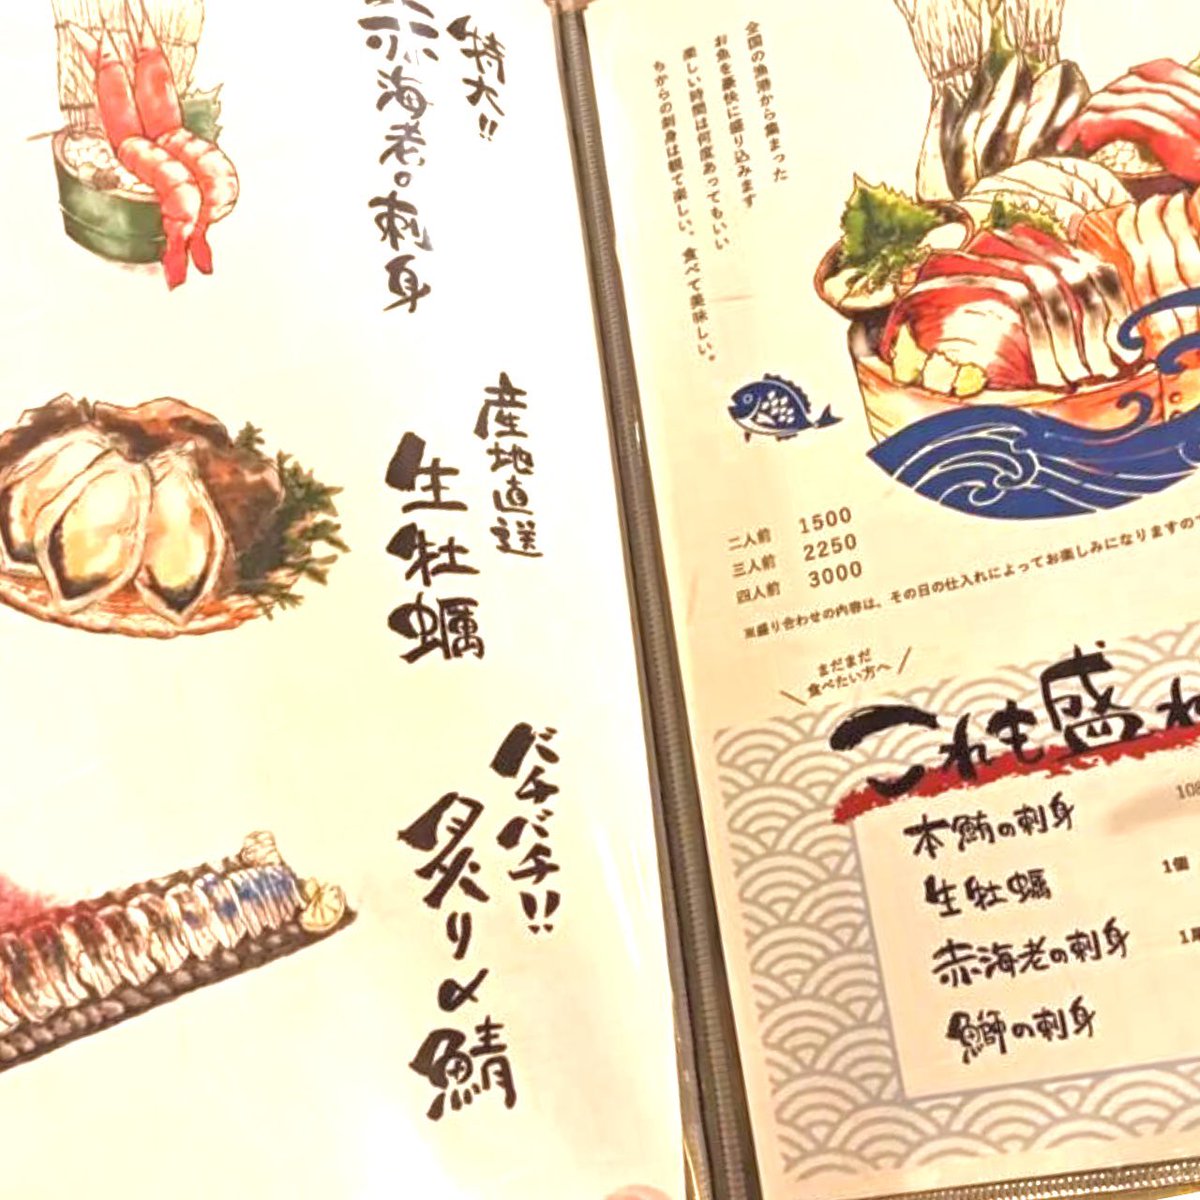 特大!!
赤海老の刺身
産地直送
生牡蠣
バチバチ!!
炙り〆鯖
全国の漁港から集まった
お魚を豪快に盛り込みます
楽しい時間は何度あってもいい
ちからの刺身は観て楽しい、食べて美味しい。
二人前 1500
三人前 2250
四人前 3000
※盛り合わせの内容は、その日の仕入れによってお楽しみになりますの
まだまだ
食べたい方へ
これも盛れ
本鮪の刺身 108
生牡蠣 1個
赤海老の刺身 1尾
鰤の刺身